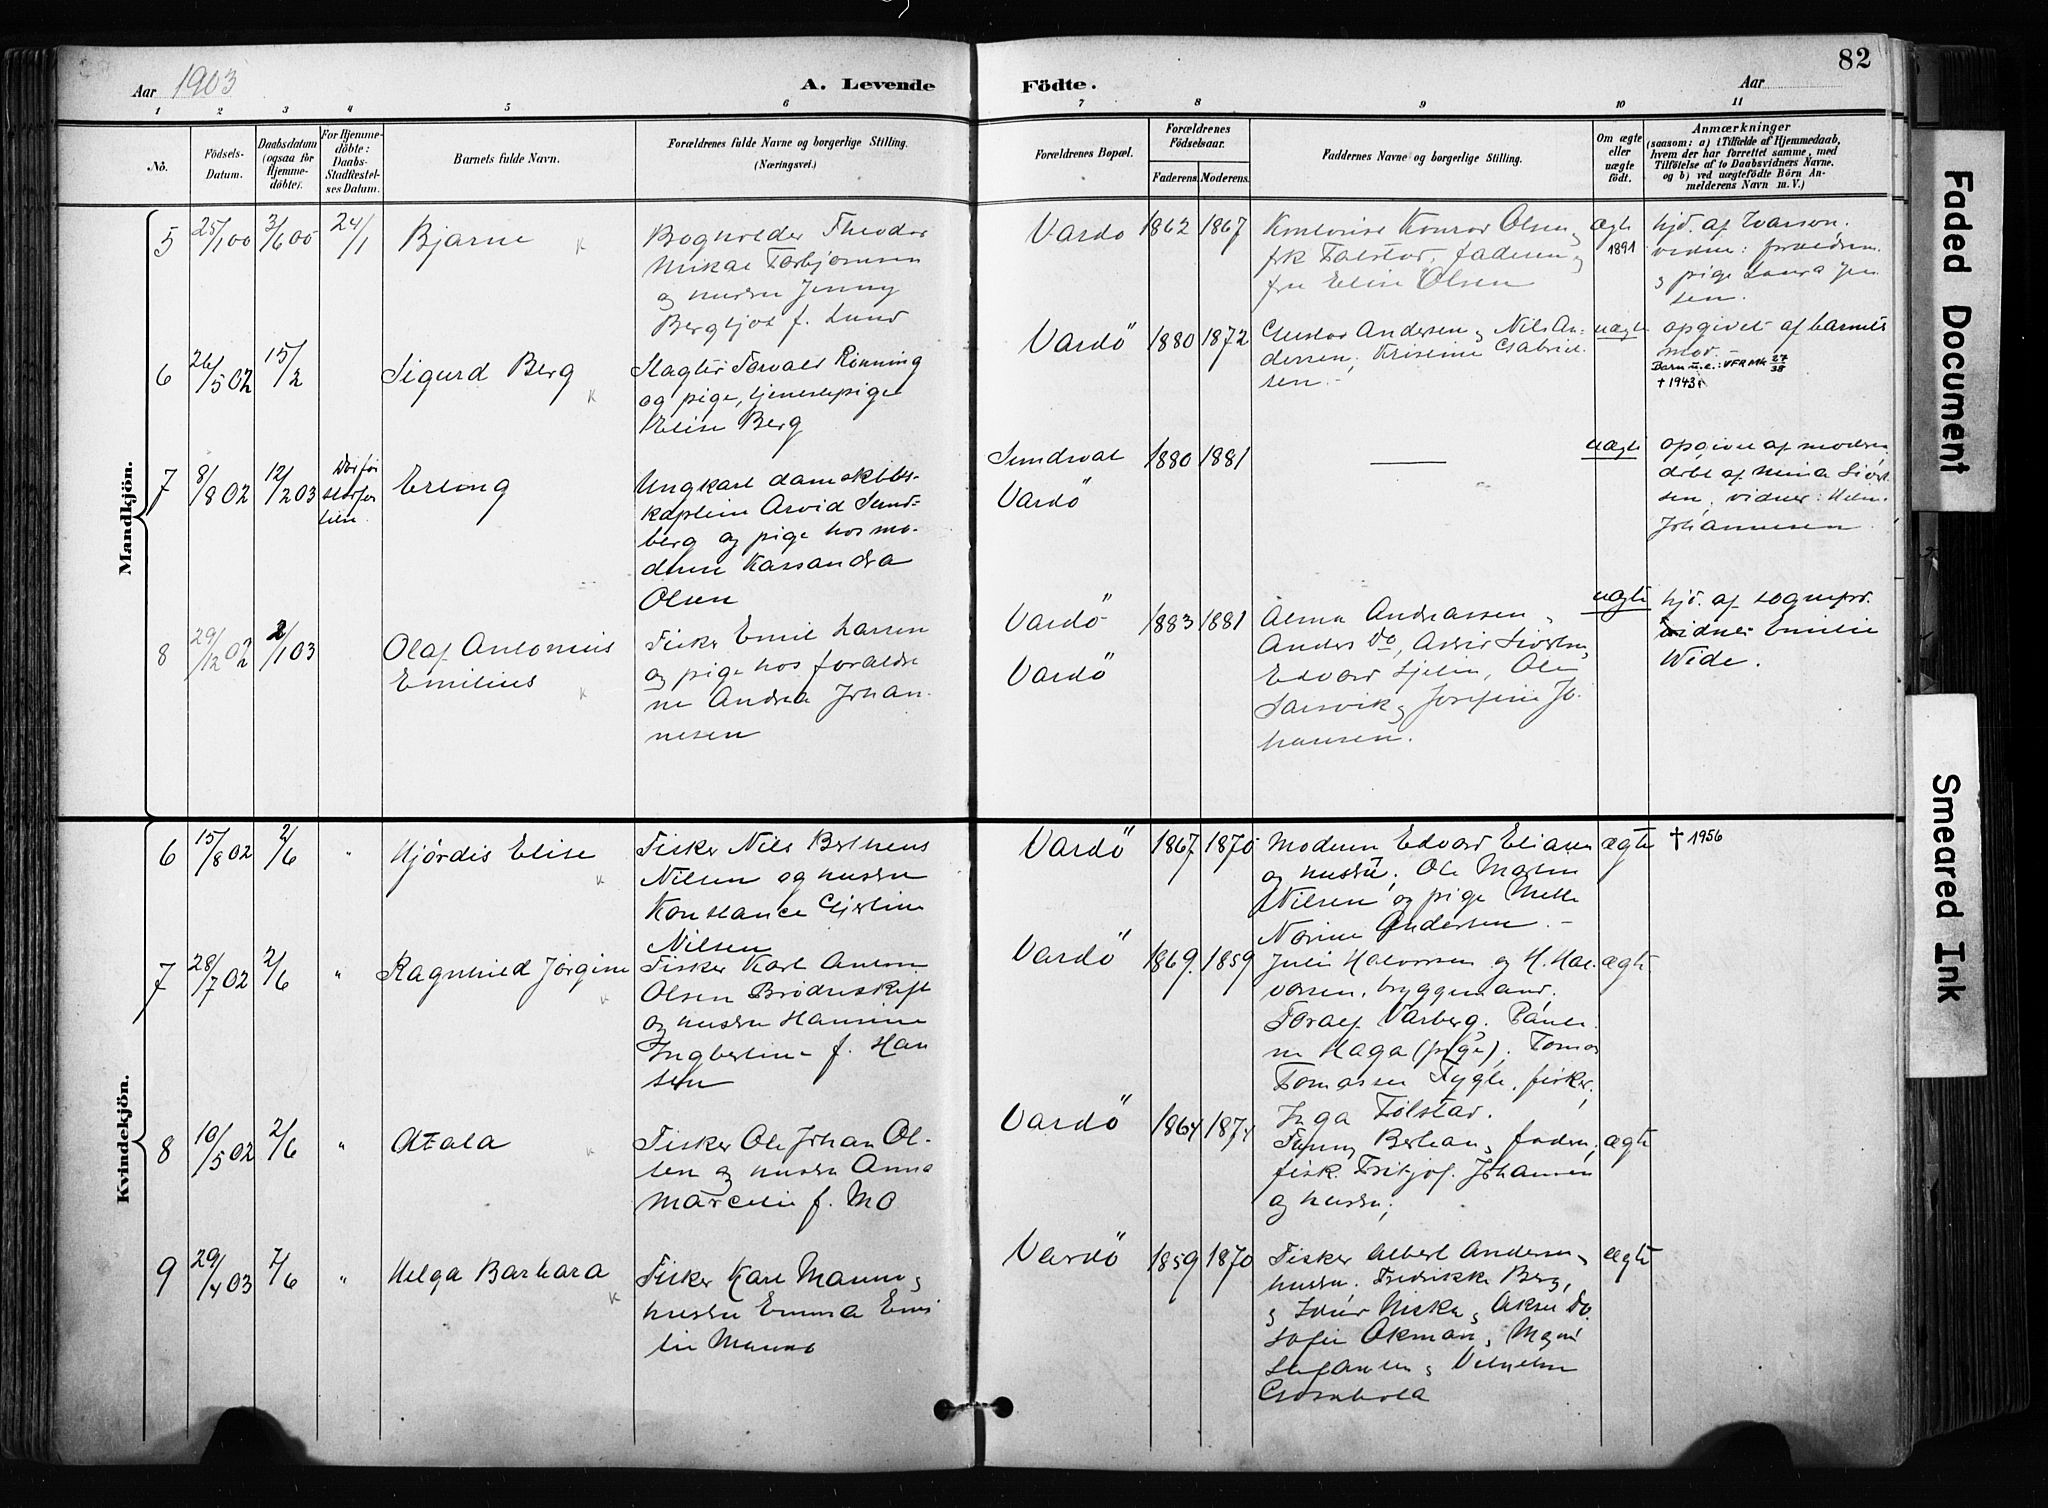 82
Aar 1903
A. Levende
Födte.
Aar
1 2 3 4 5 6 7 8 9 10 11
No.
Födsels-
Datum.
Daabsdatum
(ogsaa for
Hjemme-
döbte).
For Hjemme-
döbte:
Daabs-
Stadfæstel-
ses Datum.
Barnets fulde Navn.
Forældrenes fulde Navne og borgerlige Stilling.
(Næringsvei.)
Forældrenes Bopæl.
Forældrenes
Födselsaar.
Faderens. Moderens.
Faddernes Navne og borgerlige Stilling.
Om ægte
eller
uægte
födt.
Anmærkninger
(saasom: a) i Tilfælde af Hjemmedaab,
hvem der har forrettet samme, med
Tilföielse af to Daabsvidners Navne,
og b) ved uægtefödte Börn An-
melderens Navn m. V.)
Mandkjön.
5 25/1 00 3/6 00 24/1 Bjarne
Bogholder Theodor
Mikal Torbjørnsen
og hustru Jenny
Bergljot f. Lund
Vardø 1862 1867
Konrad Olsen
frk Tolstad, faderen
fru Elise Olsen
ægte
1891
hjd. af Ivarson,
pige Laura Jen
sen.
6 26/5 02 15/2 Sigurd Berg
Slagter Torvald Rønning
og pige, tjenestepige
Elise Berg
Vardö 1880 1872
Gustav Andersen, Nils An-
dersen, Kristine Gabriel-
sen. -
uægte
opgivet af barnets
mor. -
Barn u.e.: VFR Mk 27/38
† 1943
7 8/8 02 12/2 03
Erling
Ungkarl damskibs-
kaptein Arvid Sund-
berg og pige hos mo-
deren Kassandra
Olsen
Sundsval
Vardö
1880 1881
—
uægte
opgivet af moderen
døbt af Mina Sivert
sen, vidner: Helm.
Johannesen
8 29/12 02 2/1 03 Olaf Antonius
Emilius
Fisker Emil Larsen
og pige hos foraldre
ne Andrea Johan-
nesen
Vardö
Vardö
1883 1881
Alma Andreassen,
Anders do,
Edvard Ole
Josefine Jo-
hansen.
uægte
hjd. af sognepr.
vidne Emilie
Wide.
Kvindekjön.
6 15/8 02 2/6 " Hjørdis Elise
Fisker Nils Berthens
Nilsen og hustru
Konstance Gjertine
Nilsen
Vardö 1867 1870
Moderen Edvard Eliasen
og hustru, Ole Martin
Nilsen og pige Mette
Norine Andersen. -
ægte † 1956
7 28/7 02 2/6 " Ragnhild Jørgine
Fisker Karl Anton
Olsen Brødreskift
og hustru Hansine
Ingbertine f. Han
sen
Vardö 1869 1859
Julie Halvorsen og H. Hal-
vorsen, bryggemand,
Toralf Varberg.
ne Haga (pige), Tomas
Tomassen Fygle, fisker,
Inga Tolstad.
ægte
8 10/5 02 2/6 " Atala
Fisker Ole Johan Ol-
sen og hustru Anna
Marcelie f. Mo
Vardö 1864 1874
Berhan, faderen,
fisk. Fritjof Johansen
og hustru,
ægte
9 29/4 03 7/6 " Helga Barbara
Fisker Karl Manno,
hustru Emma Emi
lie Manno
Vardö 1859 1870
Fisker Albert Andersen,
hustru, Fredrikke Berg,
Niska, Aksel do.
Sofie Akman, Magni
Stefansen, Vilhelm
ægte
Faded Document
Smeared Ink